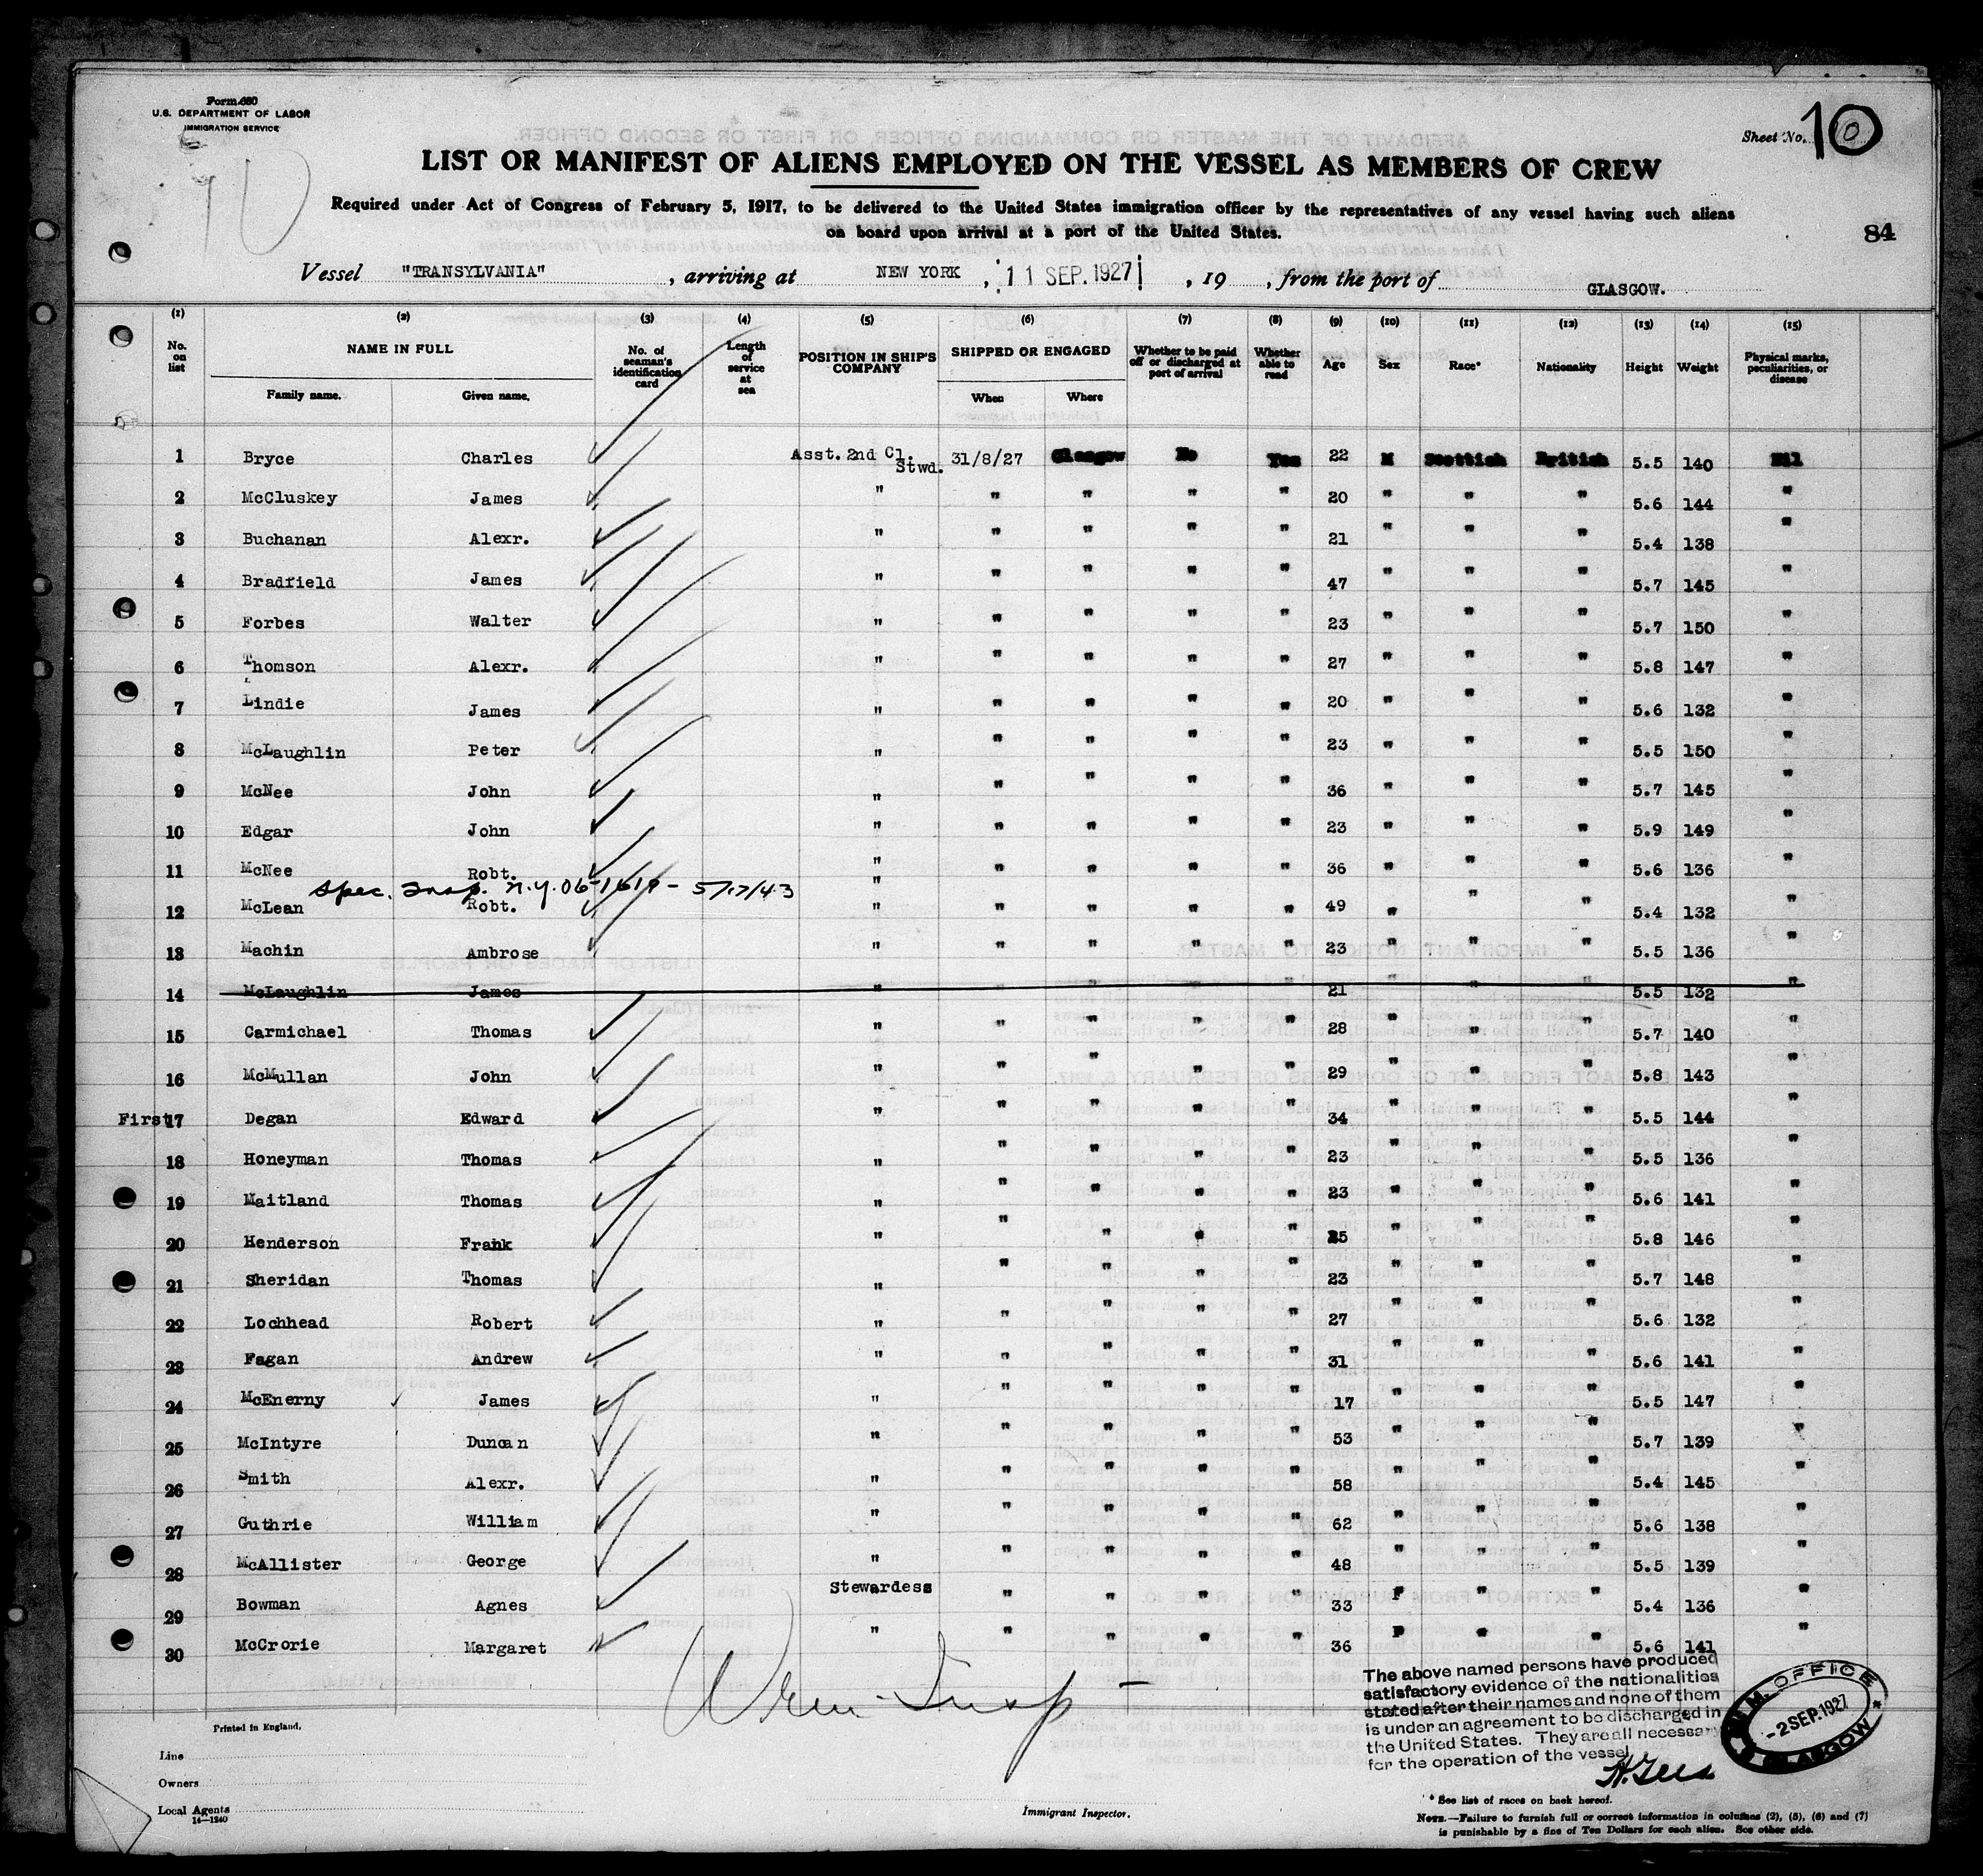 Form 680
U.S. DEPARTMENT OF LABOR
IMMIGRATION SERVICE
Sheet No. 10
LIST OR MANIFEST OF ALIENS EMPLOYED ON THE VESSEL AS MEMBERS OF CREW
Required under Act of Congress of February 5, 1917, to be delivered to the United States immigration officer by the representatives of any vessel having such aliens
on board upon arrival at a port of the United States.
84
Vessel "TRANSYLVANIA" , arriving at NEW YORK , 11 SEP. 1927 , 19 , from the port of GLASGOW.
(1) (2) (3) (4) (5) (6) (7) (8) (9) (10) (11) (12) (13) (14) (15)
No. on list NAME IN FULL Family name. Given name. No. of seaman's identification card Length of service at sea POSITION IN SHIP'S COMPANY SHIPPED OR ENGAGED When Where Whether to be paid off or discharged at port of arrival Whether able to read Age Sex Race* Nationality Height Weight Physical marks, peculiarities, or disease
1 Bryce Charles Asst. 2nd Cl. Stwd. 31/8/27 Glasgow No Yes 22 M Scottish British 5.5 140 Nil
2 McCluskey James " " " " " 20 " " " 5.6 144 "
3 Buchanan Alexr. " " " " " 21 " " " 5.4 138 "
4 Bradfield James " " " " " 47 " " " 5.7 145 "
5 Forbes Walter " " " " " 23 " " " 5.7 150 "
6 Thomson Alexr. " " " " " 27 " " " 5.8 147 "
7 Lindie James " " " " " 20 " " " 5.6 132 "
8 McLaughlin Peter " " " " " 23 " " " 5.5 150 "
9 McNee John " " " " " 36 " " " 5.7 145 "
10 Edgar John " " " " " 23 " " " 5.9 149 "
11 McNee Robt. " " " " " 36 " " " 5.6 136 "
spec. Insp. N.Y. - 5/17/43 "
12 McLean Robt. " " " " " 49 " " " 5.4 132 "
13 Machin Ambrose " " " " " 23 " " " 5.5 136 "
14 McLaughlin James " " " " " 21 " " " 5.5 132 "
15 Carmichael Thomas " " " " " 28 " " " 5.7 140 "
16 McMullan John " " " " " 29 " " " 5.8 143 "
First 17 Degan Edward " " " " " 34 " " " 5.5 144 "
18 Honeyman Thomas " " " " " 23 " " " 5.5 136 "
19 Maitland Thomas " " " " " 23 " " " 5.6 141 "
20 Henderson Frank " " " " " 25 " " " 5.8 146 "
21 Sheridan Thomas " " " " " 23 " " " 5.7 148 "
22 Lochhead Robert " " " " " 27 " " " 5.6 132 "
23 Fagan Andrew " " " " " 31 " " " 5.6 141 "
24 McEnerny James " " " " " 17 " " " 5.5 147 "
25 McIntyre Duncan " " " " " 53 " " " 5.7 139 "
26 Smith Alexr. " " " " " 58 " " " 5.4 145 "
27 Guthrie William " " " " " 62 " " " 5.6 138 "
28 McAllister George " " " " " 48 " " " 5.5 139 "
29 Bowman Agnes Stewardess " " " " 33 F " " 5.4 136 "
30 McCrorie Margaret " " " " " 36 F " " 5.6 141 "
The above named persons have produced
satisfactory evidence of the nationalities
stated after their names and none of them
is under an agreement to be discharged in
the United States. They are all necessary
for the operation of the vessel
OFFICE
-2 SEP. 1927
GLASGOW
Insp
Printed in England.
Line
Owners
Local Agents
14—1240
Immigrant Inspector.
* See list of races on back hereof.
NOTE.—Failure to furnish full or correct information in columns (2), (5), (6) and (7)
is punishable by a fine of Ten Dollars for each alien. See other side.